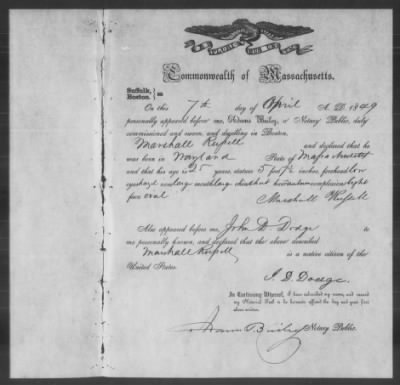 Commonwealth of Massachusetts.
Suffolk, } ss
Boston.
On this 7th day of April A. D. 1849
personally appeared before me, Notary Public, duly
commissioned and sworn, and dwelling in Boston,
Marshall Russell and declared he
was born in Wayland State of Massachusetts
and that his age is 25 years, stature 5 feet 7½ inches, forehead low
eyes nose long mouth large chin hair complexion light
face oval
Marshall Russell
Also appeared before me, John D. Dodge to
me personally known, and declared that the above described
Marshall Russell is a native citizen of the
United States.
J. D. Dodge.
In Testimony Whereof, I have subscribed my name, and caused
my Notarial Seal to be hereunto affixed the day and year first
above written.
Notary Public.